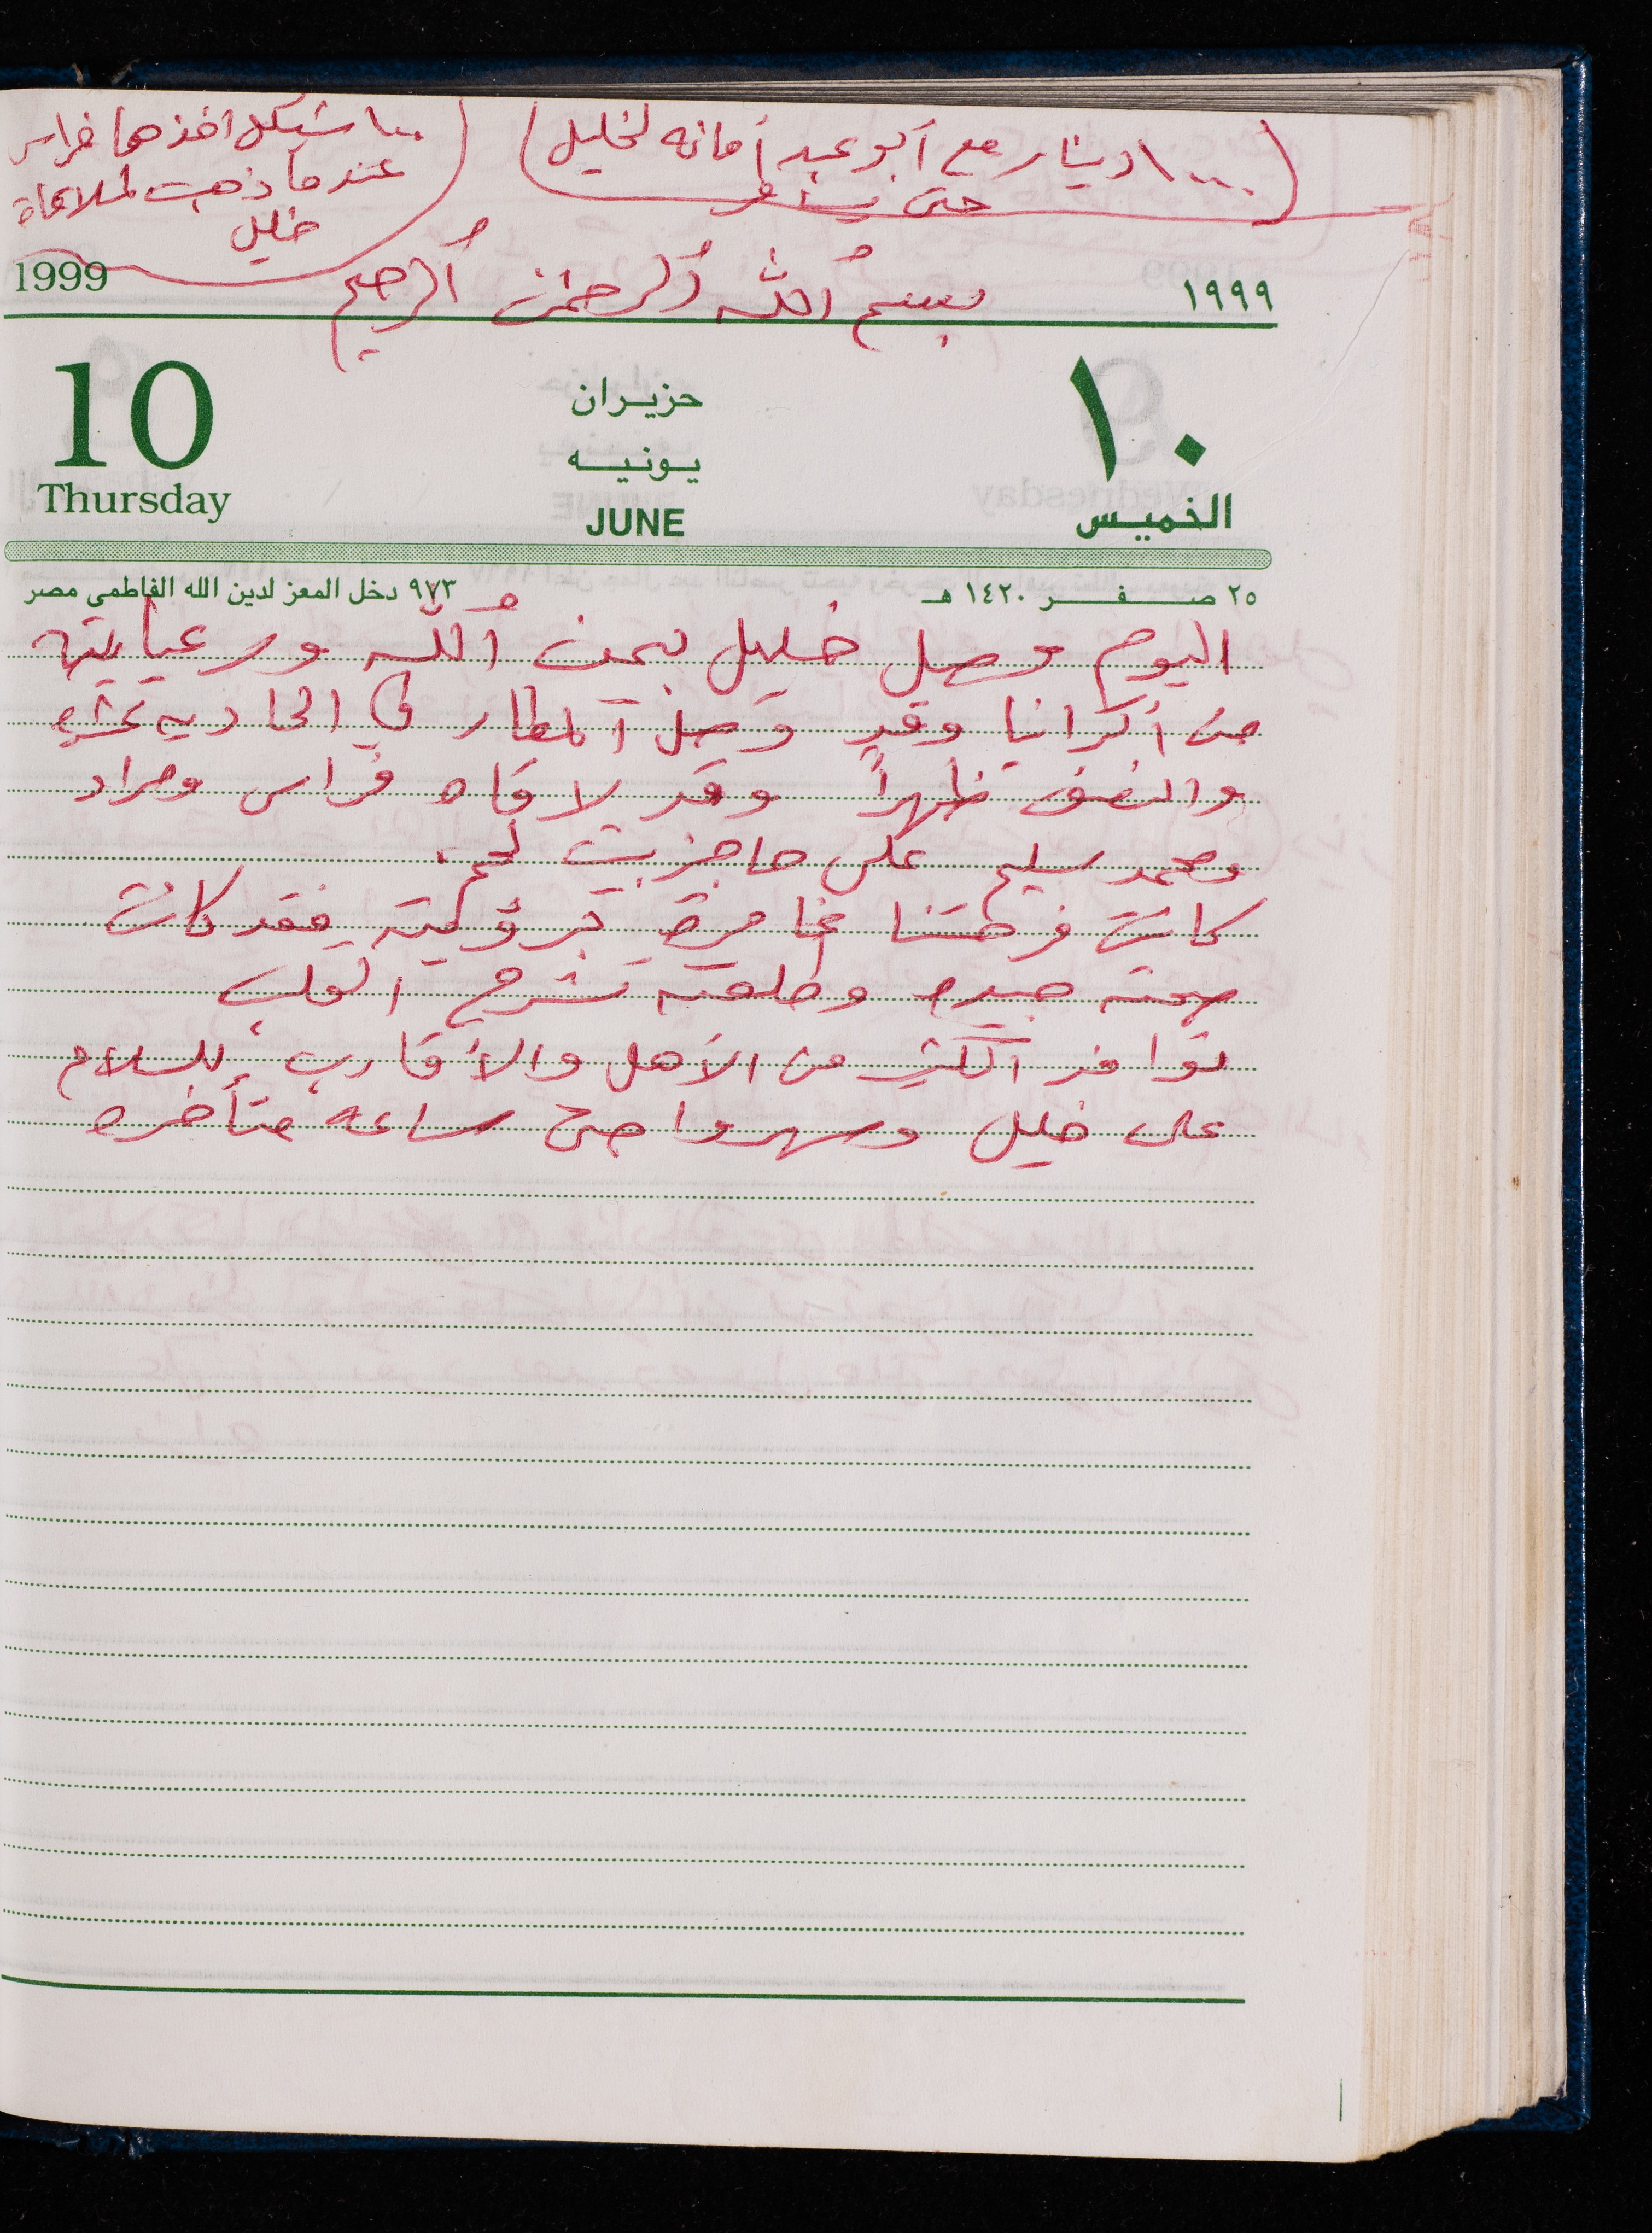 (١٠٠٠ دينار مع أبو عبد أمانه لخليل)
حتى يسافر
١٠٠ شيكل اخذها فراس
عندما ذهبت لملاقاة
خليل
1999
بسم الله الرحمن الرحيم
١٩٩٩
10
Thursday
حزيران
يونيه
JUNE
١٠
الخميس
٢٥ صفر ١٤٢٠ هـ
٩٧٣ دخل المعز لدين الله الفاطمي مصر
اليوم وصل خليل بحمد الله ورعايته
من أكرانيا وقد وصل المطار في الحاديه عشره
والنصف ظهراً وقد لاقاه فراس ومراد
ومحمد سليم على حاجز بيت لحم.
كانت فرحتنا غامرة برؤيته فقد كانت
صحته جيده وطلعته تشرح القلب
توافد الكثير من الأهل والأقارب للسلام
على خليل وسهروا حتى ساعه متأخره